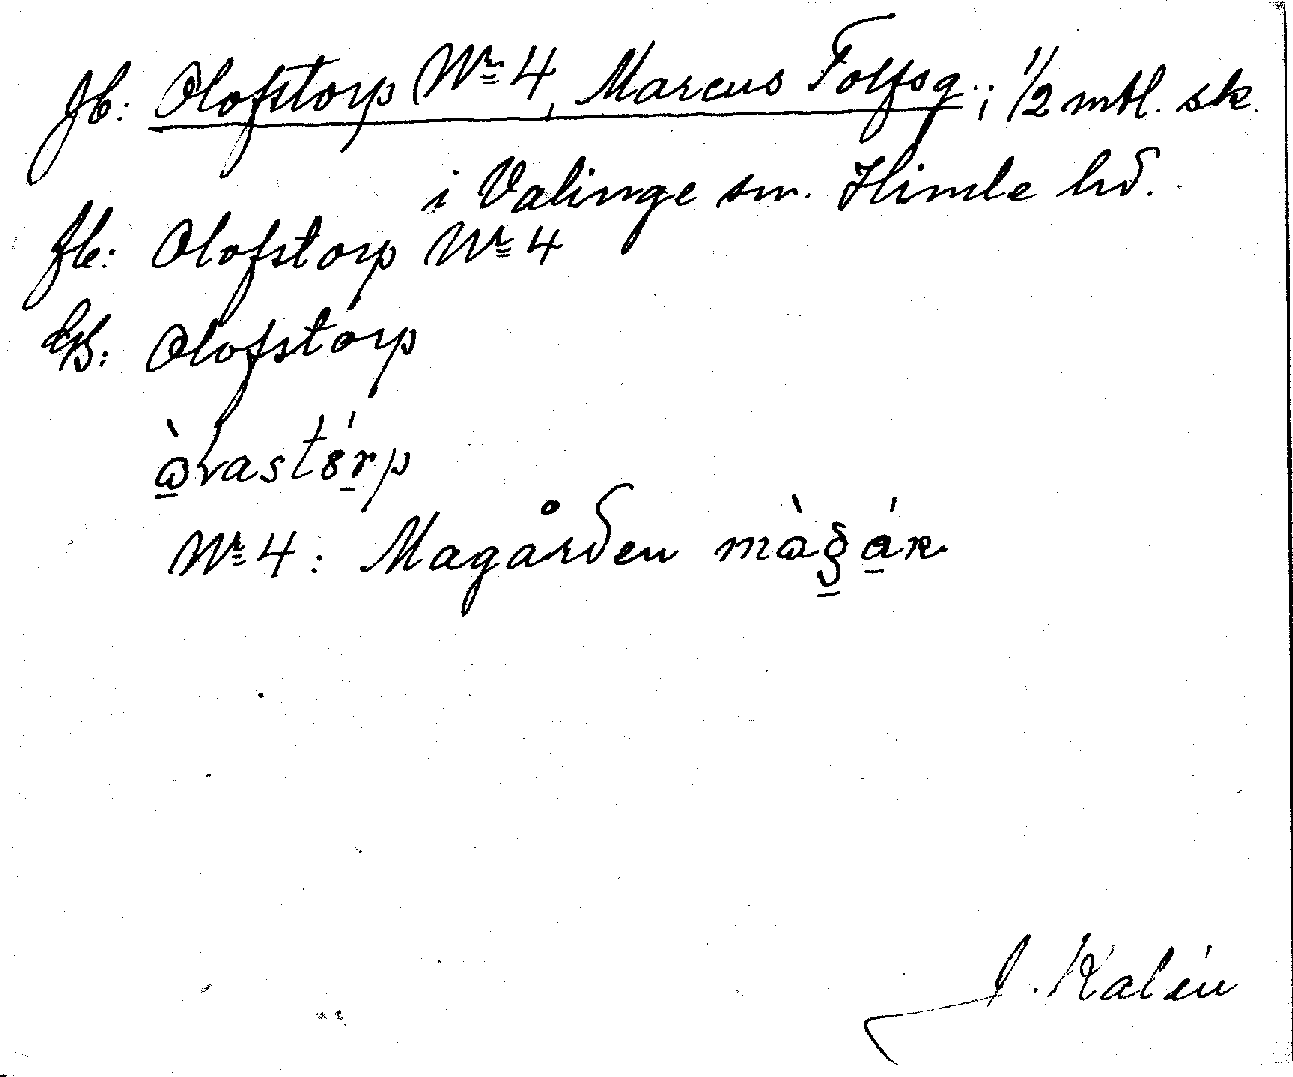 Jb: Olofstorp (Nr 4, Marcus Tolfsg.; 1/2 mtl. sk.
i Valinge sn. Himle hd.
Jb: Olofstorp Nr 4
GB: Olofstorp
Nr 4: Magården
J. Kalén